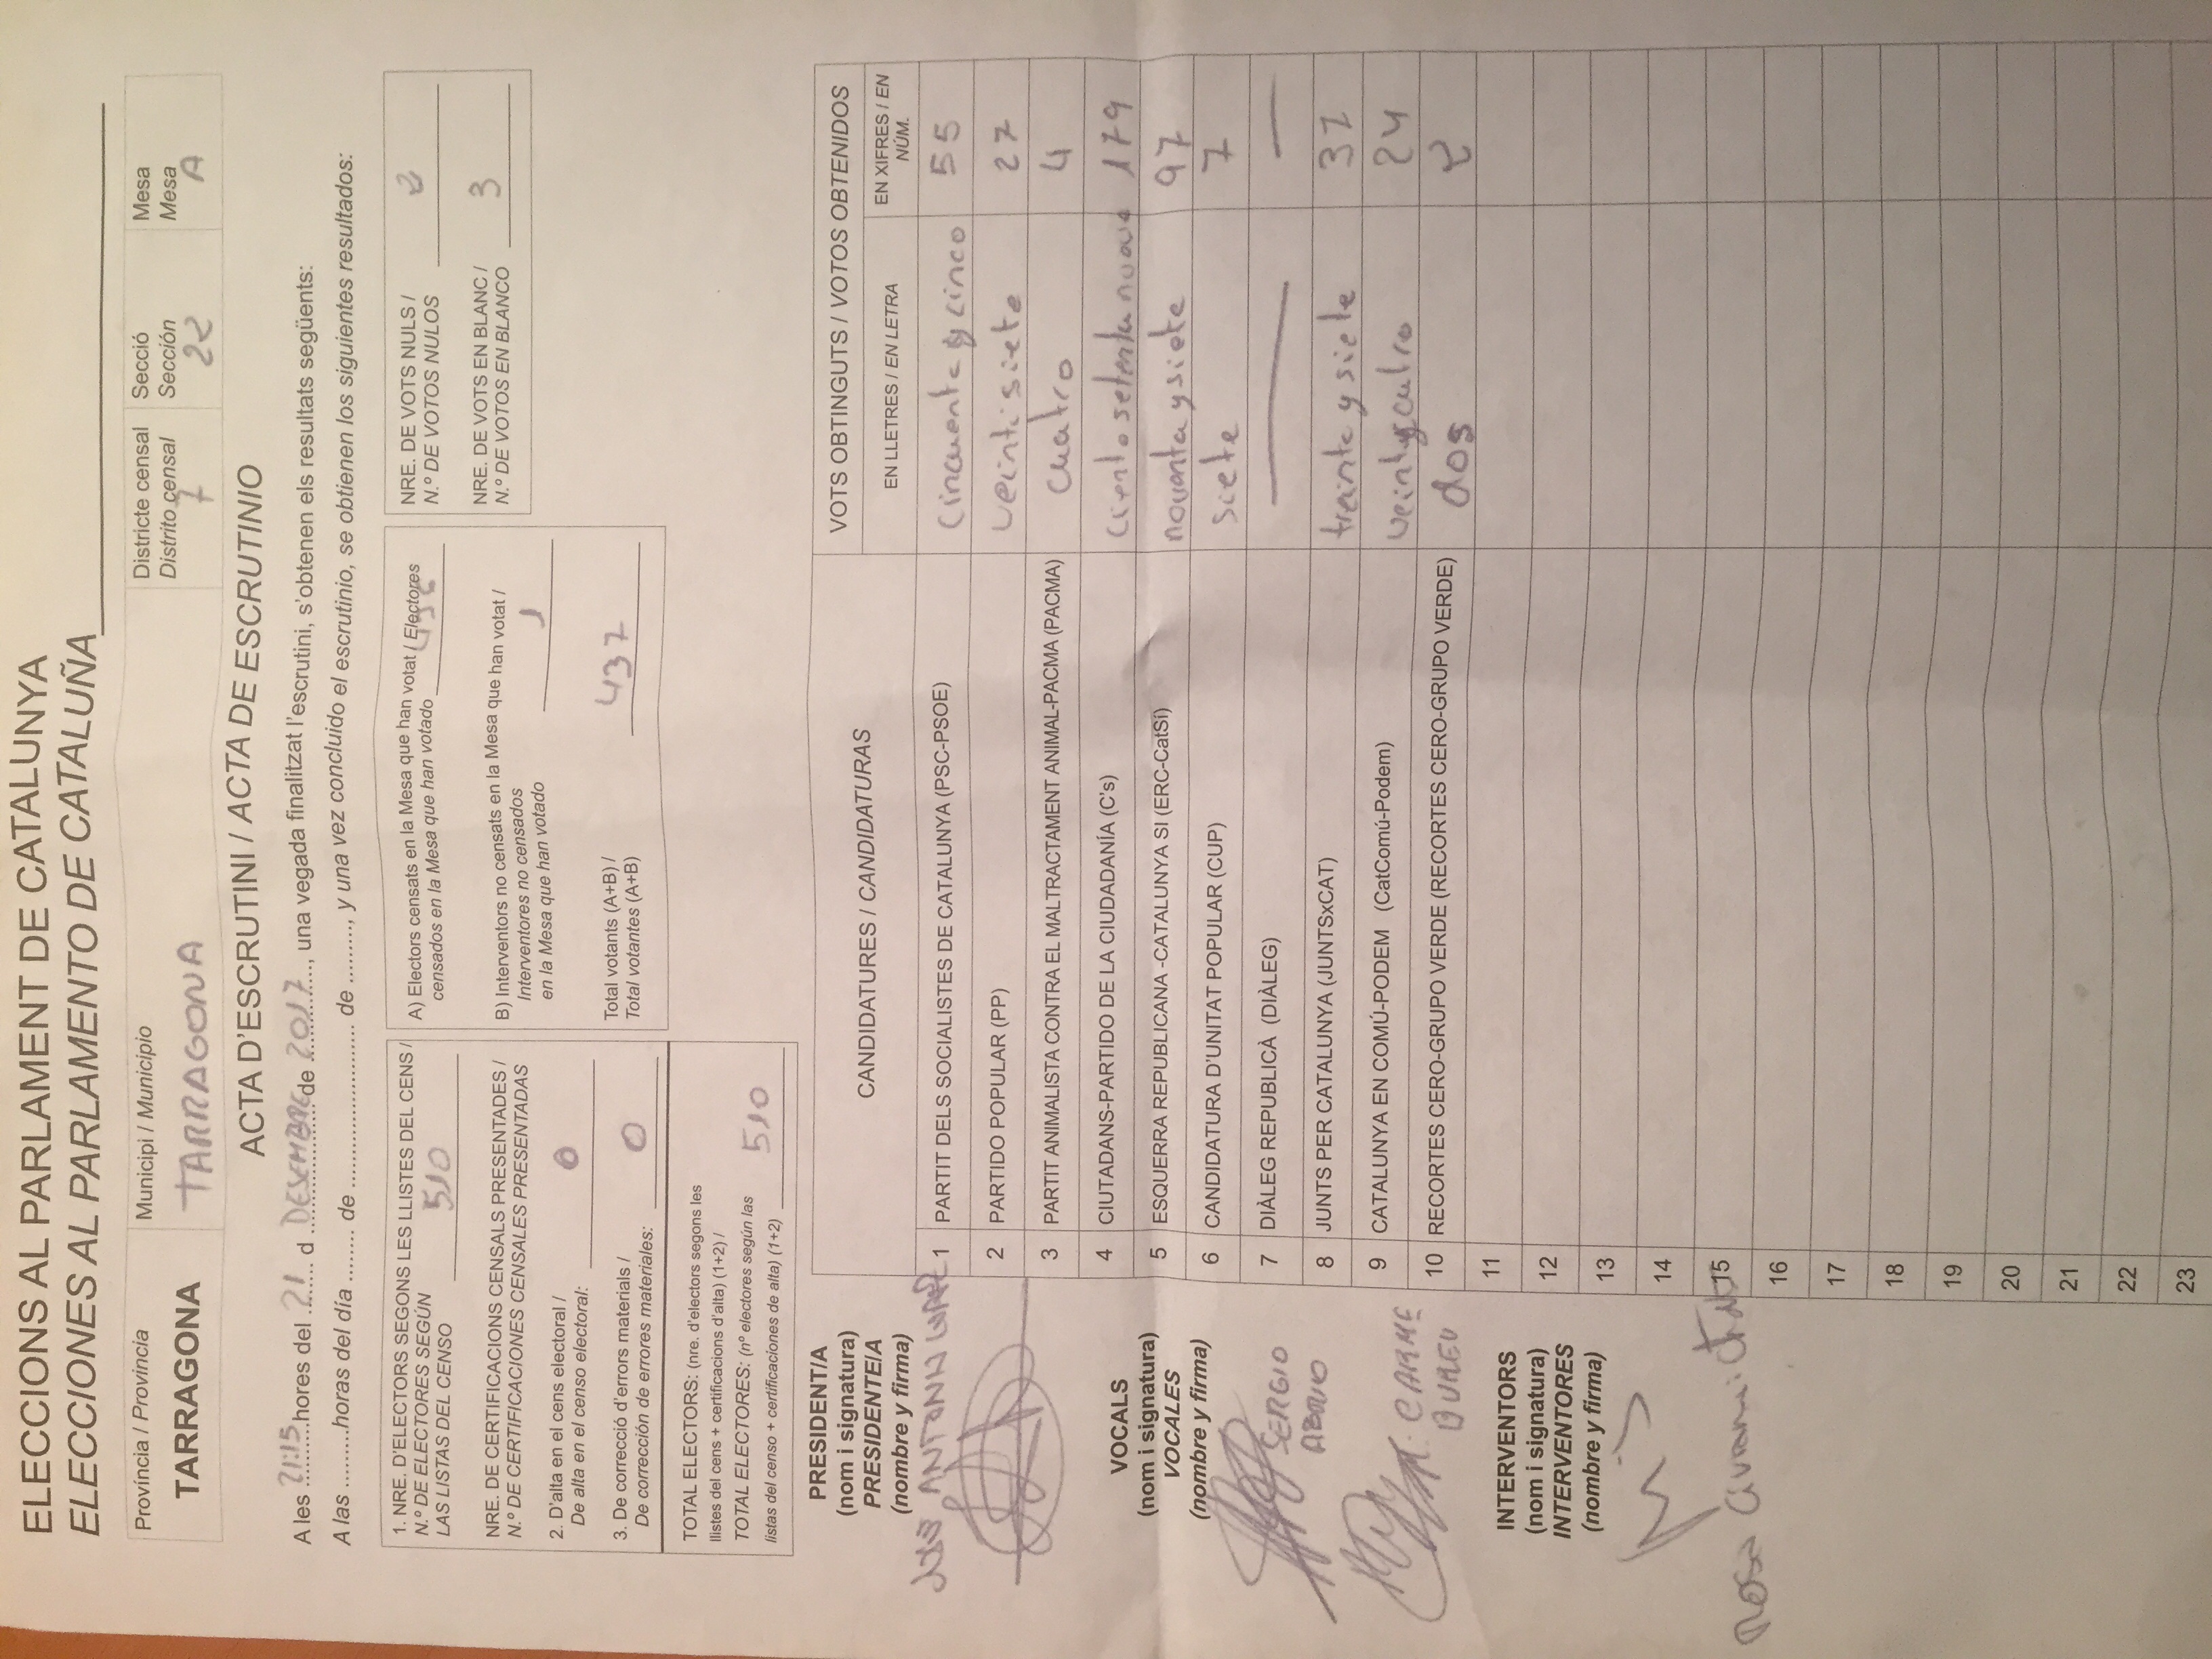 ELECCIONS AL PARLAMENT DE CATALUNYA
ELECCIONES AL PARLAMENTO DE CATALUÑA
Província / Provincia
TARRAGONA
Municipi / Municipio
TARRAGONA
Districte censal
Distrito censal
7
Secció
Sección
22
Mesa
Mesa
A
ACTA D'ESCRUTINI / ACTA DE ESCRUTINIO
A les 21:15 hores del 21 d DESEMBRE de 2017, una vegada finalitzat l'escrutini, s'obtenen els resultats següents:
A las .........horas del día ........ de ......................... de ........., y una vez concluido el escrutinio, se obtienen los siguientes resultados:
1. NRE. D'ELECTORS SEGONS LES LLISTES DEL CENS /
N.º DE ELECTORES SEGÚN
LAS LISTAS DEL CENSO 510
NRE. DE CERTIFICACIONS CENSALS PRESENTADES /
N.º DE CERTIFICACIONES CENSALES PRESENTADAS
2. D'alta en el cens electoral /
De alta en el censo electoral: 0
3. De correcció d'errors materials /
De corrección de errores materiales: 0
TOTAL ELECTORS: (nre. d'electors segons les
llistes del cens + certificacions d'alta) (1+2) /
TOTAL ELECTORES: (nº electores según las
listas del censo + certificaciones de alta) (1+2) 510
A) Electors censats en la Mesa que han votat / Electores
censados en la Mesa que han votado 436
B) Interventors no censats en la Mesa que han votat /
Interventores no censados
en la Mesa que han votado 1
Total votants (A+B) /
Total votantes (A+B) 437
NRE. DE VOTS NULS /
N.º DE VOTOS NULOS 2
NRE. DE VOTS EN BLANC /
N.º DE VOTOS EN BLANCO 3
PRESIDENT/A
(nom i signatura)
PRESIDENTE/A
(nombre y firma)
JOSE ANTONIO
VOCALS
(nom i signatura)
VOCALES
(nombre y firma)
SERGIO
M. CARME
INTERVENTORS
(nom i signatura)
INTERVENTORES
(nombre y firma)
Rosa
CANDIDATURES / CANDIDATURAS
VOTS OBTINGUTS / VOTOS OBTENIDOS
EN LLETRES / EN LETRA
EN XIFRES / EN
NÚM.
1 PARTIT DELS SOCIALISTES DE CATALUNYA (PSC-PSOE) cincuenta y cinco 55
2 PARTIDO POPULAR (PP) veinti siete 27
3 PARTIT ANIMALISTA CONTRA EL MALTRACTAMENT ANIMAL-PACMA (PACMA) cuatro 4
4 CIUTADANS-PARTIDO DE LA CIUDADANÍA (C's) ciento setenta nueve 179
5 ESQUERRA REPUBLICANA -CATALUNYA SI (ERC-CatSí) noventa y siete 97
6 CANDIDATURA D'UNITAT POPULAR (CUP) siete 7
7 DIÀLEG REPUBLICÀ (DIÀLEG) — —
8 JUNTS PER CATALUNYA (JUNTSxCAT) treinta y siete 37
9 CATALUNYA EN COMÚ-PODEM (CatComú-Podem) 24
10 RECORTES CERO-GRUPO VERDE (RECORTES CERO-GRUPO VERDE) dos 2
11
12
13
14
15
16
17
18
19
20
21
22
23